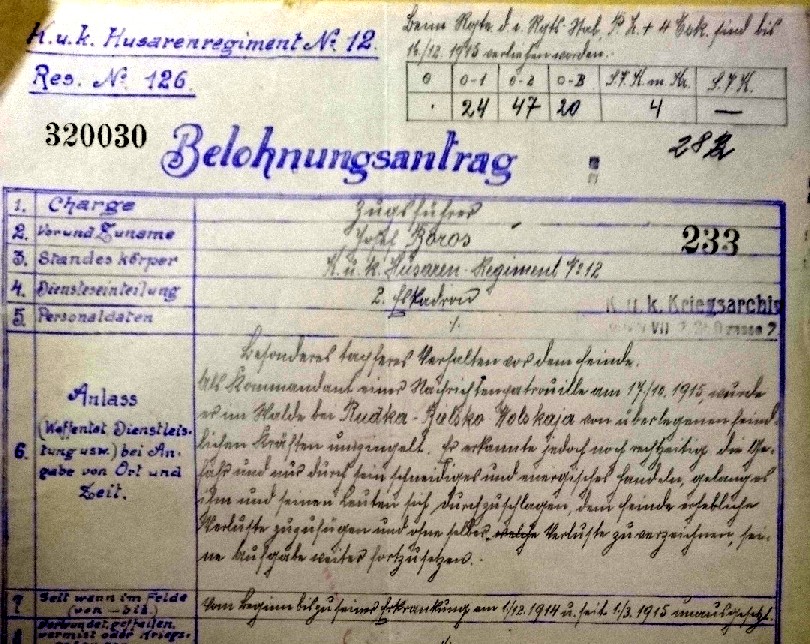 K.u.k. Husarenregiment No. 12.
Res. No. 126.
Beim Rgte d. i. Rgts Stab, 4 Esk. sind bis
16/12. 1915 verliehen worden.
o o-1 o-2 o-B S.T.K. m. Kr. S.T.K.
. 24 47 20 4 —
320030
Belohnungsantrag
28
1. Charge Zugsführer
2. Vor und Zuname Josef Boros
233
3. Standeskörper K.u.k. Husaren-Regiment No 12
4. Diensteseinteilung 2. Eskadron
K.u.k. Kriegsarchiv
5. Personaldaten ./.
VII
6. Anlass (Waffentat, Dienstleistung usw.) bei Angabe von Ort und Zeit.
Besonderes tapferes Verhalten vor dem Feinde.
Als Kommandant einer Nachrichtenpatrouille am 17./10. 1915 wurde
er im Walde bei Rudka-Bielsko Wolskaja von überlegenen feind-
lichen Kräften umzingelt. Er erkannte jedoch noch rechtzeitig die Ge-
fahr und nur durch sein schneidiges und energisches Handeln, gelang es
ihm und seinen Leuten sich durchzuschlagen, dem Feinde erhebliche
Verluste zuzufügen und ohne selbst welche Verluste zu verzeichnen, sei-
ne Aufgabe weiter fortzusetzen.
7 Seit wann im Felde (von – bis.)
Vom Beginn bis zu seiner Erkrankung am 1/12. 1914 u. seit 1/3. 1915 unausgesetzt.
8 Verwundet, gefallen,
vermisst oder Kriegs-